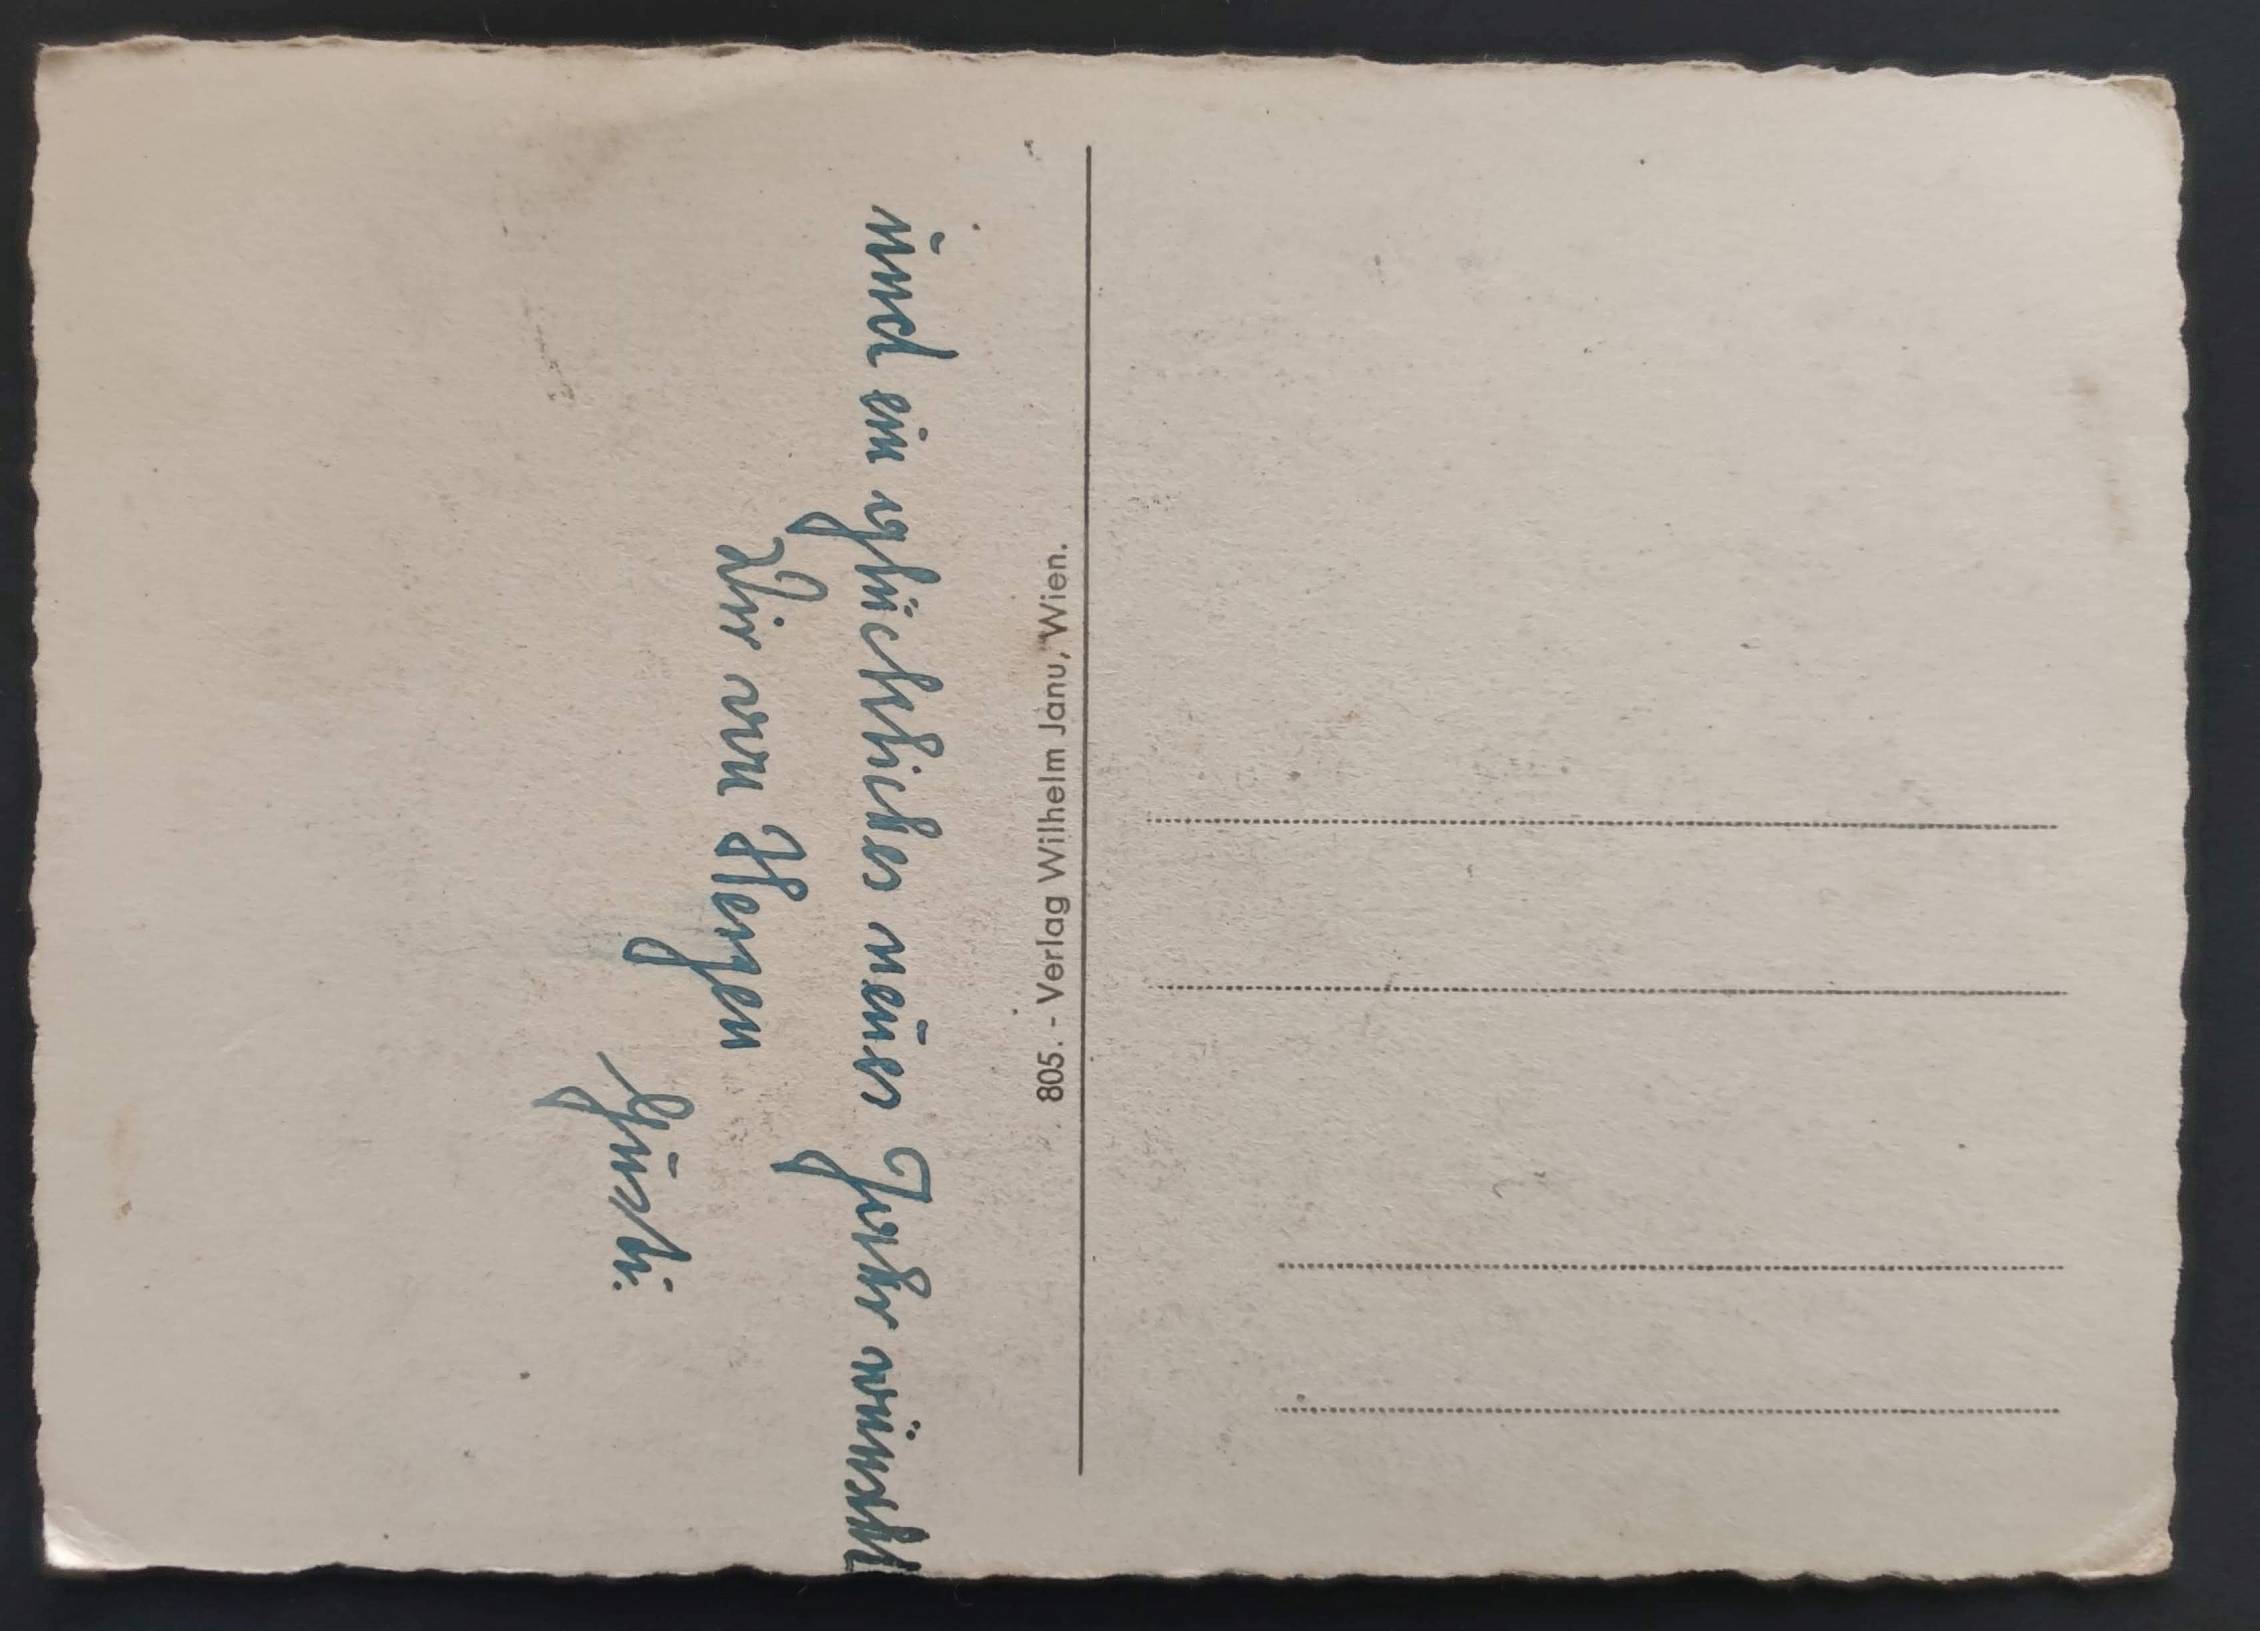 und ein glückliches neues Jahr wünscht
Dir von Herzen
Gusti.
805. - Verlag Wilhelm Janu, Wien.